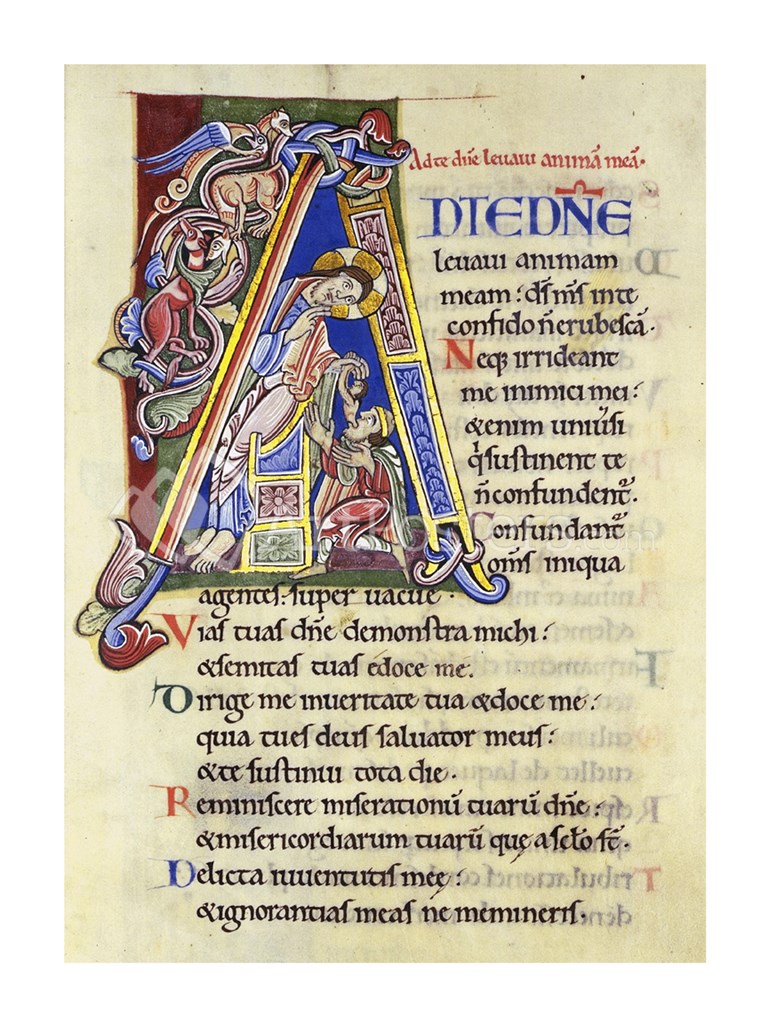 Ad te dn̄e levavi animā meā.
AD TE DN̄E
levavi animam
meam: dſ mſ in te
confido ñ erubeſcā.
Neq; irrideant
me inimici mei:
& enim univſi
q̇ ſuſtinent te
ñ confundent̄.
Confundant̄
om̄ſ iniqua
agenteſ: ſuper vacue.
Viaſ tuaſ dn̄e demonſtra michi:
& ſemitaſ tuaſ edoce me.
Dirige me in veritate tua & doce me:
quia tu eſ deuſ ſalvator meuſ:
& te ſuſtinui tota die.
Reminiſcere miſerationū tuarū dn̄e:
& miſericordiarum tuarū quę a ſcl̄o ſt̄.
Delicta iuventutiſ meę:
& ignorantiaſ meaſ ne memineriſ.